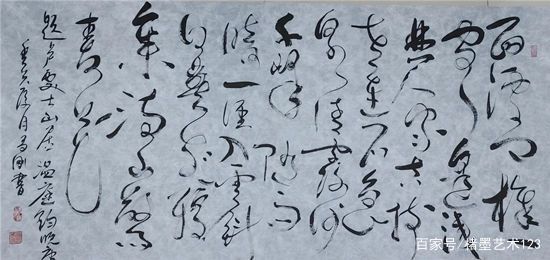 西溪问樵
客遥识
楚人家古树
老连石急
泉清露沙
千峰随雨
暗一径入云斜
日暮飞鸦
集满山荞
麦花
题卢处士山居温庭筠晚唐
月 刚书
百家号/楮墨艺术123